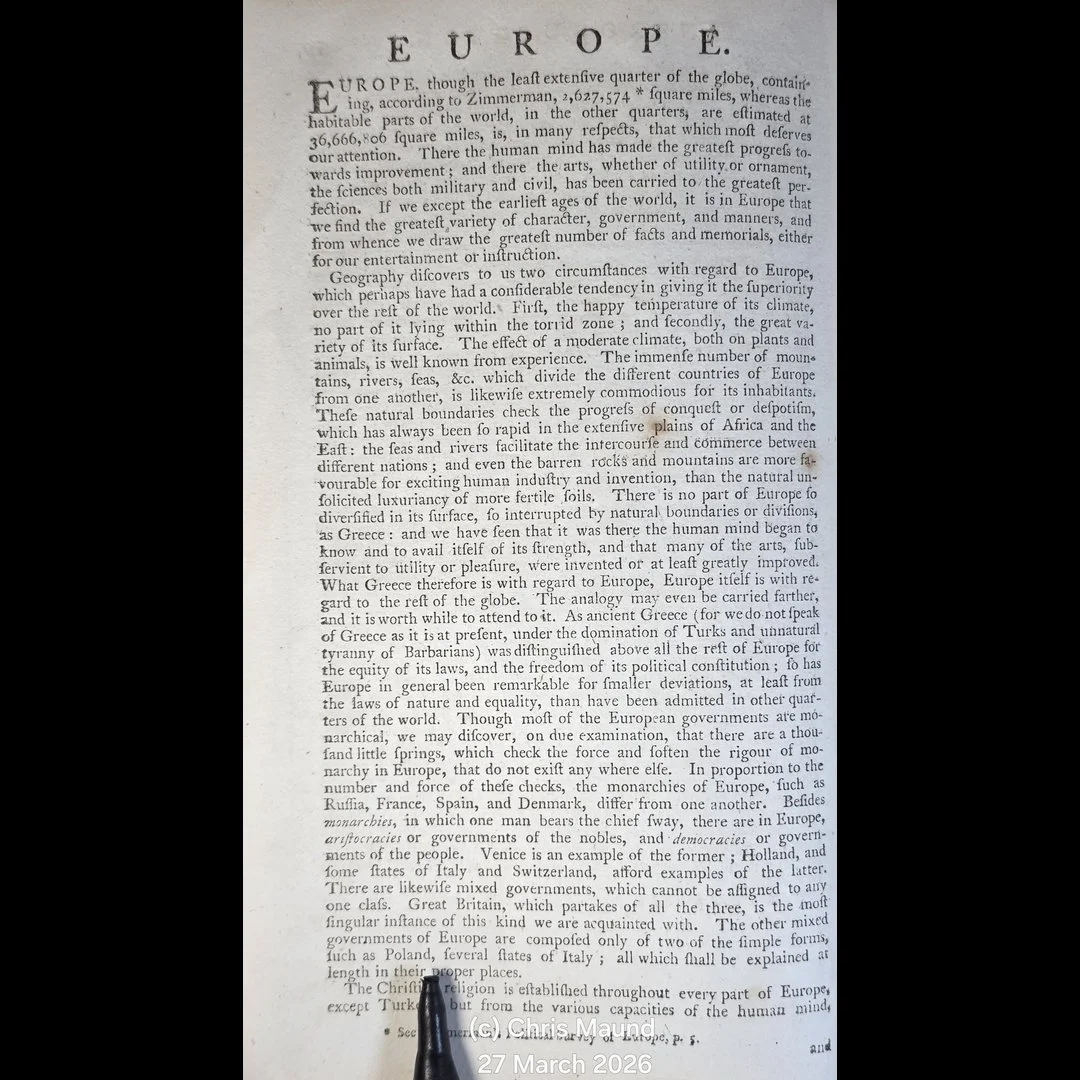 E U R O P E.
EUROPE, though the leaſt extenſive quarter of the globe, contain-
ing, according to Zimmerman, 2,627,574 * ſquare miles, whereas the
habitable parts of the world, in the other quarters, are eſtimated at
36,666,806 ſquare miles, is, in many reſpects, that which moſt deſerves
our attention. There the human mind has made the greateſt progreſs to-
wards improvement; and there the arts, whether of utility or ornament,
the ſciences both military and civil, has been carried to the greateſt per-
fection. If we except the earlieſt ages of the world, it is in Europe that
we find the greateſt variety of character, government, and manners, and
from whence we draw the greateſt number of facts and memorials, either
for our entertainment or inſtruction.
Geography diſcovers to us two circumſtances with regard to Europe,
which perhaps have had a conſiderable tendency in giving it the ſuperiority
over the reſt of the world. Firſt, the happy temperature of its climate,
no part of it lying within the torrid zone; and ſecondly, the great va-
riety of its ſurface. The effect of a moderate climate, both on plants and
animals, is well known from experience. The immenſe number of moun-
tains, rivers, ſeas, &c. which divide the different countries of Europe
from one another, is likewiſe extremely commodious for its inhabitants.
Theſe natural boundaries check the progreſs of conqueſt or deſpotiſm,
which has always been ſo rapid in the extenſive plains of Africa and the
Eaſt: the ſeas and rivers facilitate the intercourſe and commerce between
different nations; and even the barren rocks and mountains are more fa-
vourable for exciting human induſtry and invention, than the natural un-
ſolicited luxuriancy of more fertile ſoils. There is no part of Europe ſo
diverſified in its ſurface, ſo interrupted by natural boundaries or diviſions,
as Greece: and we have ſeen that it was there the human mind began to
know and to avail itſelf of its ſtrength, and that many of the arts, ſub-
ſervient to utility or pleaſure, were invented or at leaſt greatly improved.
What Greece therefore is with regard to Europe, Europe itſelf is with re-
gard to the reſt of the globe. The analogy may even be carried farther,
and it is worth while to attend to it. As ancient Greece (for we do not ſpeak
of Greece as it is at preſent, under the domination of Turks and unnatural
tyranny of Barbarians) was diſtinguiſhed above all the reſt of Europe for
the equity of its laws, and the freedom of its political conſtitution; ſo has
Europe in general been remarkable for ſmaller deviations, at leaſt from
the laws of nature and equality, than have been admitted in other quar-
ters of the world. Though moſt of the European governments are mo-
narchical, we may diſcover, on due examination, that there are a thou-
ſand little ſprings, which check the force and ſoften the rigour of mo-
narchy in Europe, that do not exiſt any where elſe. In proportion to the
number and force of theſe checks, the monarchies of Europe, ſuch as
Ruſſia, France, Spain, and Denmark, differ from one another. Beſides
monarchies, in which one man bears the chief ſway, there are in Europe,
ariſtocracies or governments of the nobles, and democracies or govern-
ments of the people. Venice is an example of the former; Holland, and
ſome ſtates of Italy and Switzerland, afford examples of the latter.
There are likewiſe mixed governments, which cannot be aſſigned to any
one claſs. Great Britain, which partakes of all the three, is the moſt
ſingular inſtance of this kind we are acquainted with. The other mixed
governments of Europe are compoſed only of two of the ſimple forms,
ſuch as Poland, ſeveral ſtates of Italy; all which ſhall be explained at
length in their proper places.
The religion is eſtabliſhed throughout every part of Europe,
except but from the various capacities of the human mind,
* See Survey of Europe, p. 5.
and
(c) Chris Maund
27 March 2026